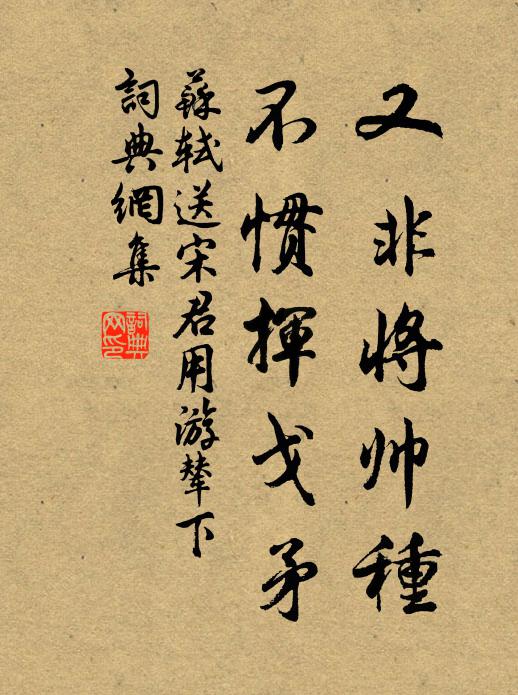 又非将帅種
不慣揮戈矛
蘇軾送宋君用游輦下
詞典網集
詞典
网印